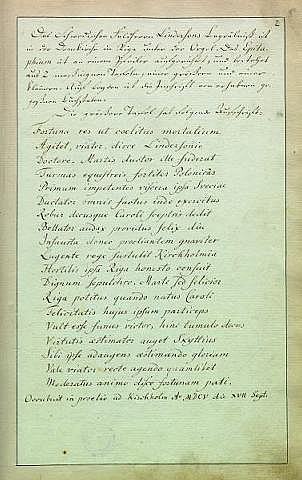 2
Des Schwedischen Feldherrn Lindersons Begräbniß ist
in der Domkirche in Riga unter der Orgel. Das Epita-
phium ist an einem Pfeiler aufgerichtet, und bestehet
aus 2 messingenen Tafeln, einer größern und einer
kleinern. Auf beyden ist die Inschrift von erhabenen ge-
goßenen Buchstaben.
Die größere Tafel hat folgende Aufschrift.
Fortuna res ut coelitus mortalium
Agitet, viator, disce Lindersonio
Doctore. Martis ductor ille fuderat
Turmas equestreis fortiter Polonicas
Primum impetentes viscera ipsa Sveciae
Ductator omnis factus inde exercitus
Robur decusque Caroli sceptris dedit
Bellator audax providus, felix diu
Infausta donec proeliantem gnaviter
Lugente rege sustulit Kirckholmia
Hostilis ipsa Riga honesto censuit
Dignum sepulchro. Marte sed felicior
Riga potitus quando natus Caroli
Felicitatis hujus ipsum participem
Vult esse fames victor, hinc tumulo decus
Virtutis aestimator auget Skyttius
Sibi ipse adaugens aestimando gloriam
Vale viator recte agendo quamlibet
Moderatus animo disce fortunam pati.
Occubuit in proelio ad Kirchholm Aº MDCV die XVII Sept.